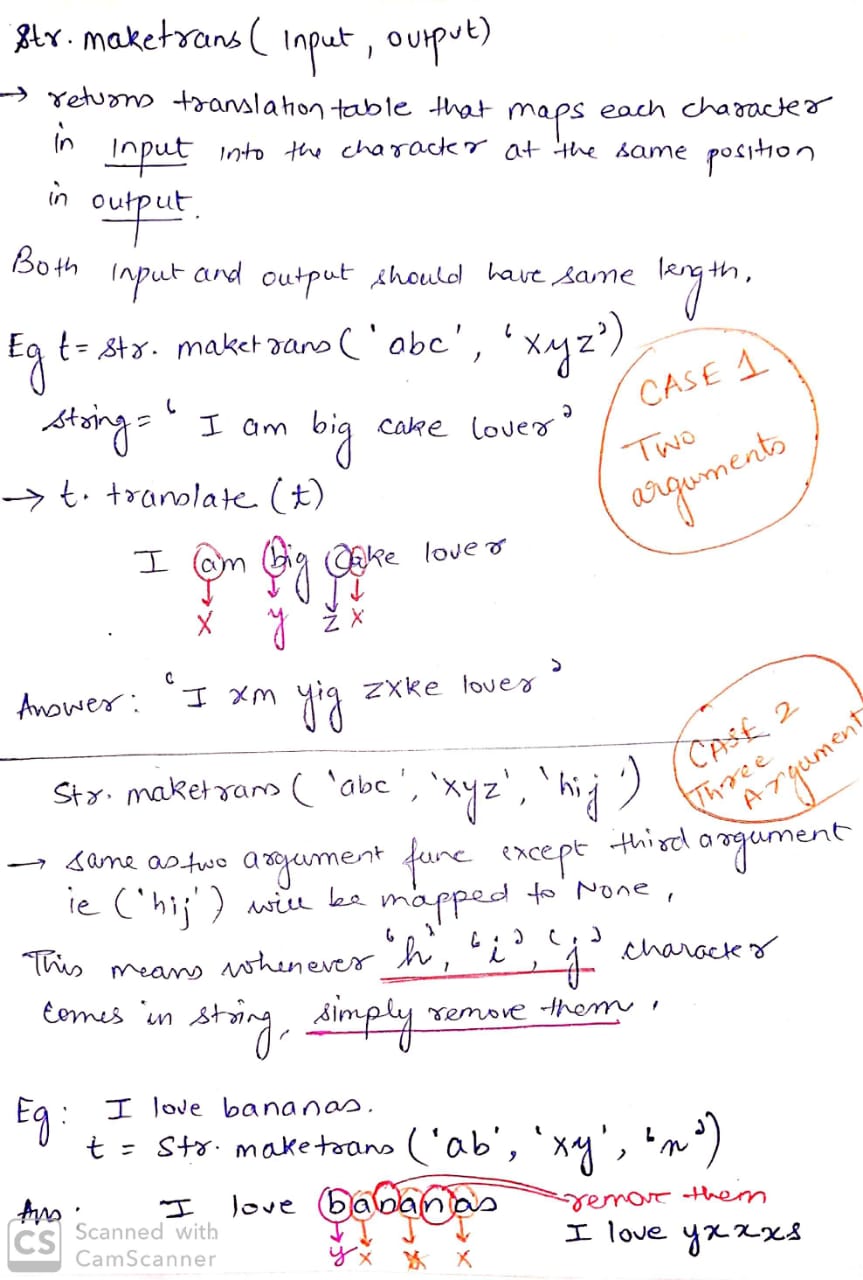 str. maketrans( input, output)
→ returns translation table that maps each character
in input into the character at the same position
in output.
Both input and output should have same length.
Eg t = str. maketrans('abc', 'xyz')
CASE 1
Two
arguments
string = 'I am big cake lover'
→ t. translate (t)
I am big cake lover
x y z x
Answer: 'I xm yig zxke lover'
CASE 2
Three
Argument
Str. maketrans ('abc', 'xyz', 'hij')
→ same as two argument func except third argument
ie ('hij') will be mapped to None,
This means whenever 'h', 'i', 'j' character
comes in string, simply remove them.
Eg: I love bananas.
t = Str. maketrans ('ab', 'xy', 'n')
Ans: I love bananas remove them
y x x x I love yxxxs
CS Scanned with
CamScanner